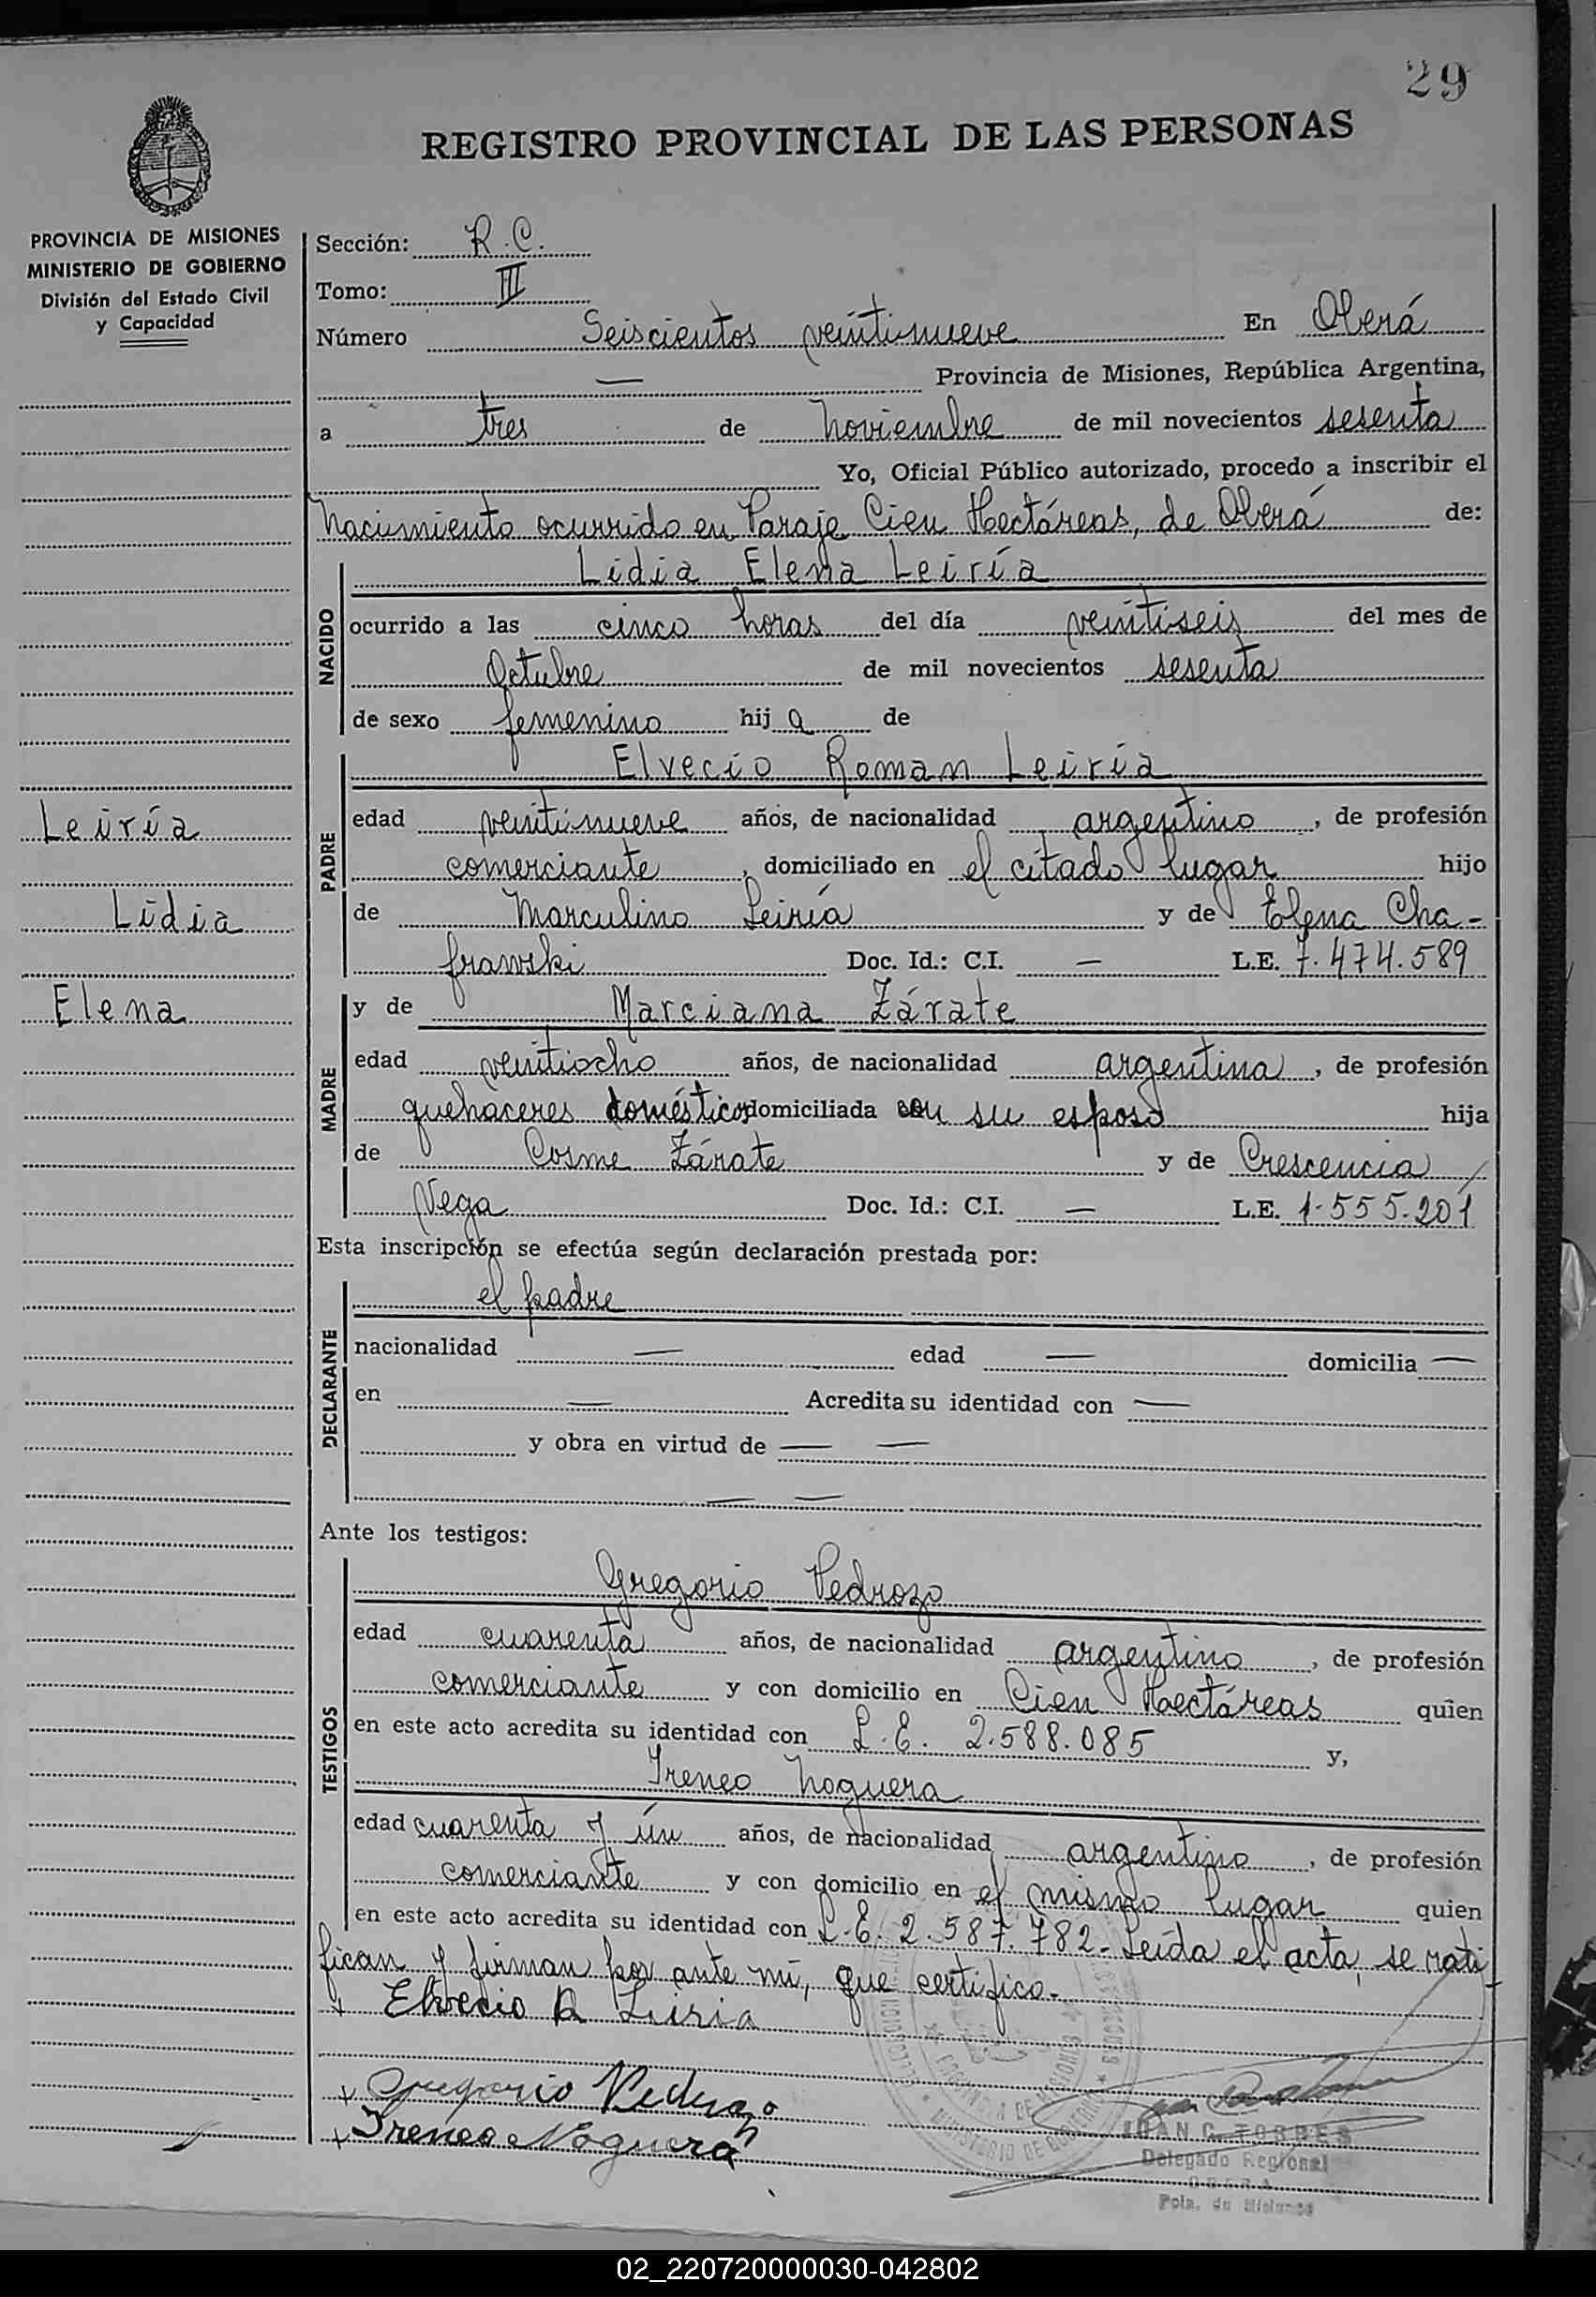 29
REGISTRO PROVINCIAL DE LAS PERSONAS
PROVINCIA DE MISIONES
MINISTERIO DE GOBIERNO
División del Estado Civil
y Capacidad
Sección: R.C.
Tomo: III
Número Seiscientos veintinueve En Oberá
— Provincia de Misiones, República Argentina,
a tres de Noviembre de mil novecientos sesenta
Yo, Oficial Público autorizado, procedo a inscribir el
Nacimiento ocurrido en Paraje Cien Hectáreas, de Oberá de:
NACIDO
Lidia Elena Leiría
ocurrido a las cinco horas del día veintiseis del mes de
Octubre de mil novecientos sesenta
de sexo femenino hij a de
PADRE
Elvecio Roman Leiría
edad veintinueve años, de nacionalidad argentino, de profesión
comerciante, domiciliado en el citado lugar hijo
de Marculino Leiría y de Elena Cha-
frawski Doc. Id.: C.I. — L.E. 7.474.589
Leiría
Lidia
Elena
MADRE
y de Marciana Zárate
edad veintiocho años, de nacionalidad argentina, de profesión
quehaceres domésticos domiciliada con su esposo hija
de Cosme Zárate y de Crescencia
Vega Doc. Id.: C.I. — L.E. 1.555.201
Esta inscripción se efectúa según declaración prestada por:
DECLARANTE
el padre
nacionalidad — edad — domicilia —
en — Acredita su identidad con —
y obra en virtud de — —
— —
Ante los testigos:
TESTIGOS
Gregorio Pedrozo
edad cuarenta años, de nacionalidad argentino, de profesión
comerciante y con domicilio en Cien Hectáreas quien
en este acto acredita su identidad con L.E. 2.588.085 y,
Ireneo Noguera
edad cuarenta y ún años, de nacionalidad argentino, de profesión
comerciante y con domicilio en el mismo lugar quien
en este acto acredita su identidad con L.E. 2.587.782- Leída el acta, se rati
fican y firman por ante mí, que certifico.-
+ Elvecio R Leiria
+ Gregorio Pedrozo
+ Ireneo Noguera
JUAN C. TORRES
Delegado Regional
OBERA
Pcia. de Misiones
02_220720000030-042802